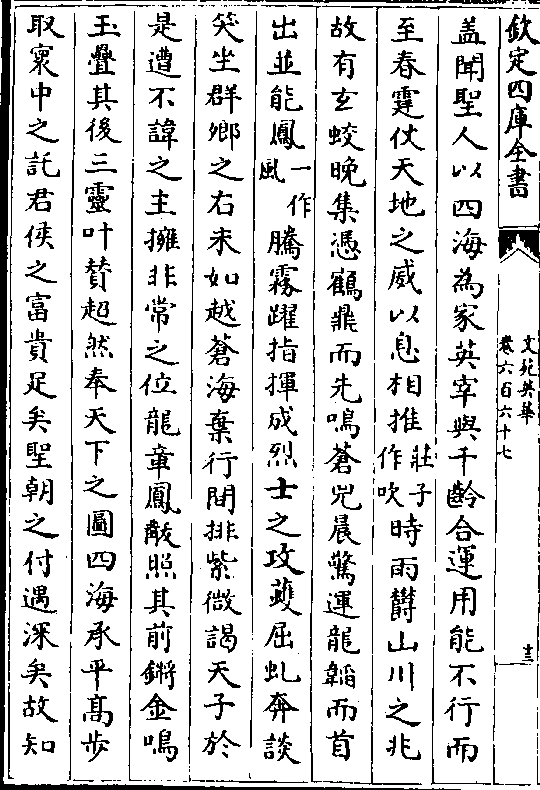 欽定四庫全書
文苑英華
卷六百六十七
十三
盖聞聖人以四海為家英宰與千齡合運用能不行而
至春霆仗天地之威以息相推莊子作吹時雨欝山川之兆
故有玄蛟晚集憑鶴鼎而先鳴蒼兕晨驚運龍韜而首
出並能鳳一作風騰霧躍指揮成烈士之攻蠖屈虬奔談
笑坐群卿之右未如越蒼海棄行間排紫微謁天子於
是遭不諱之主擁非常之位龍章鳳黻照其前鏘金鳴
玉疊其後三靈叶賛超然奉天下之圖四海承平髙步
取寰中之託君侯之富貴足矣聖朝之付遇深矣故知